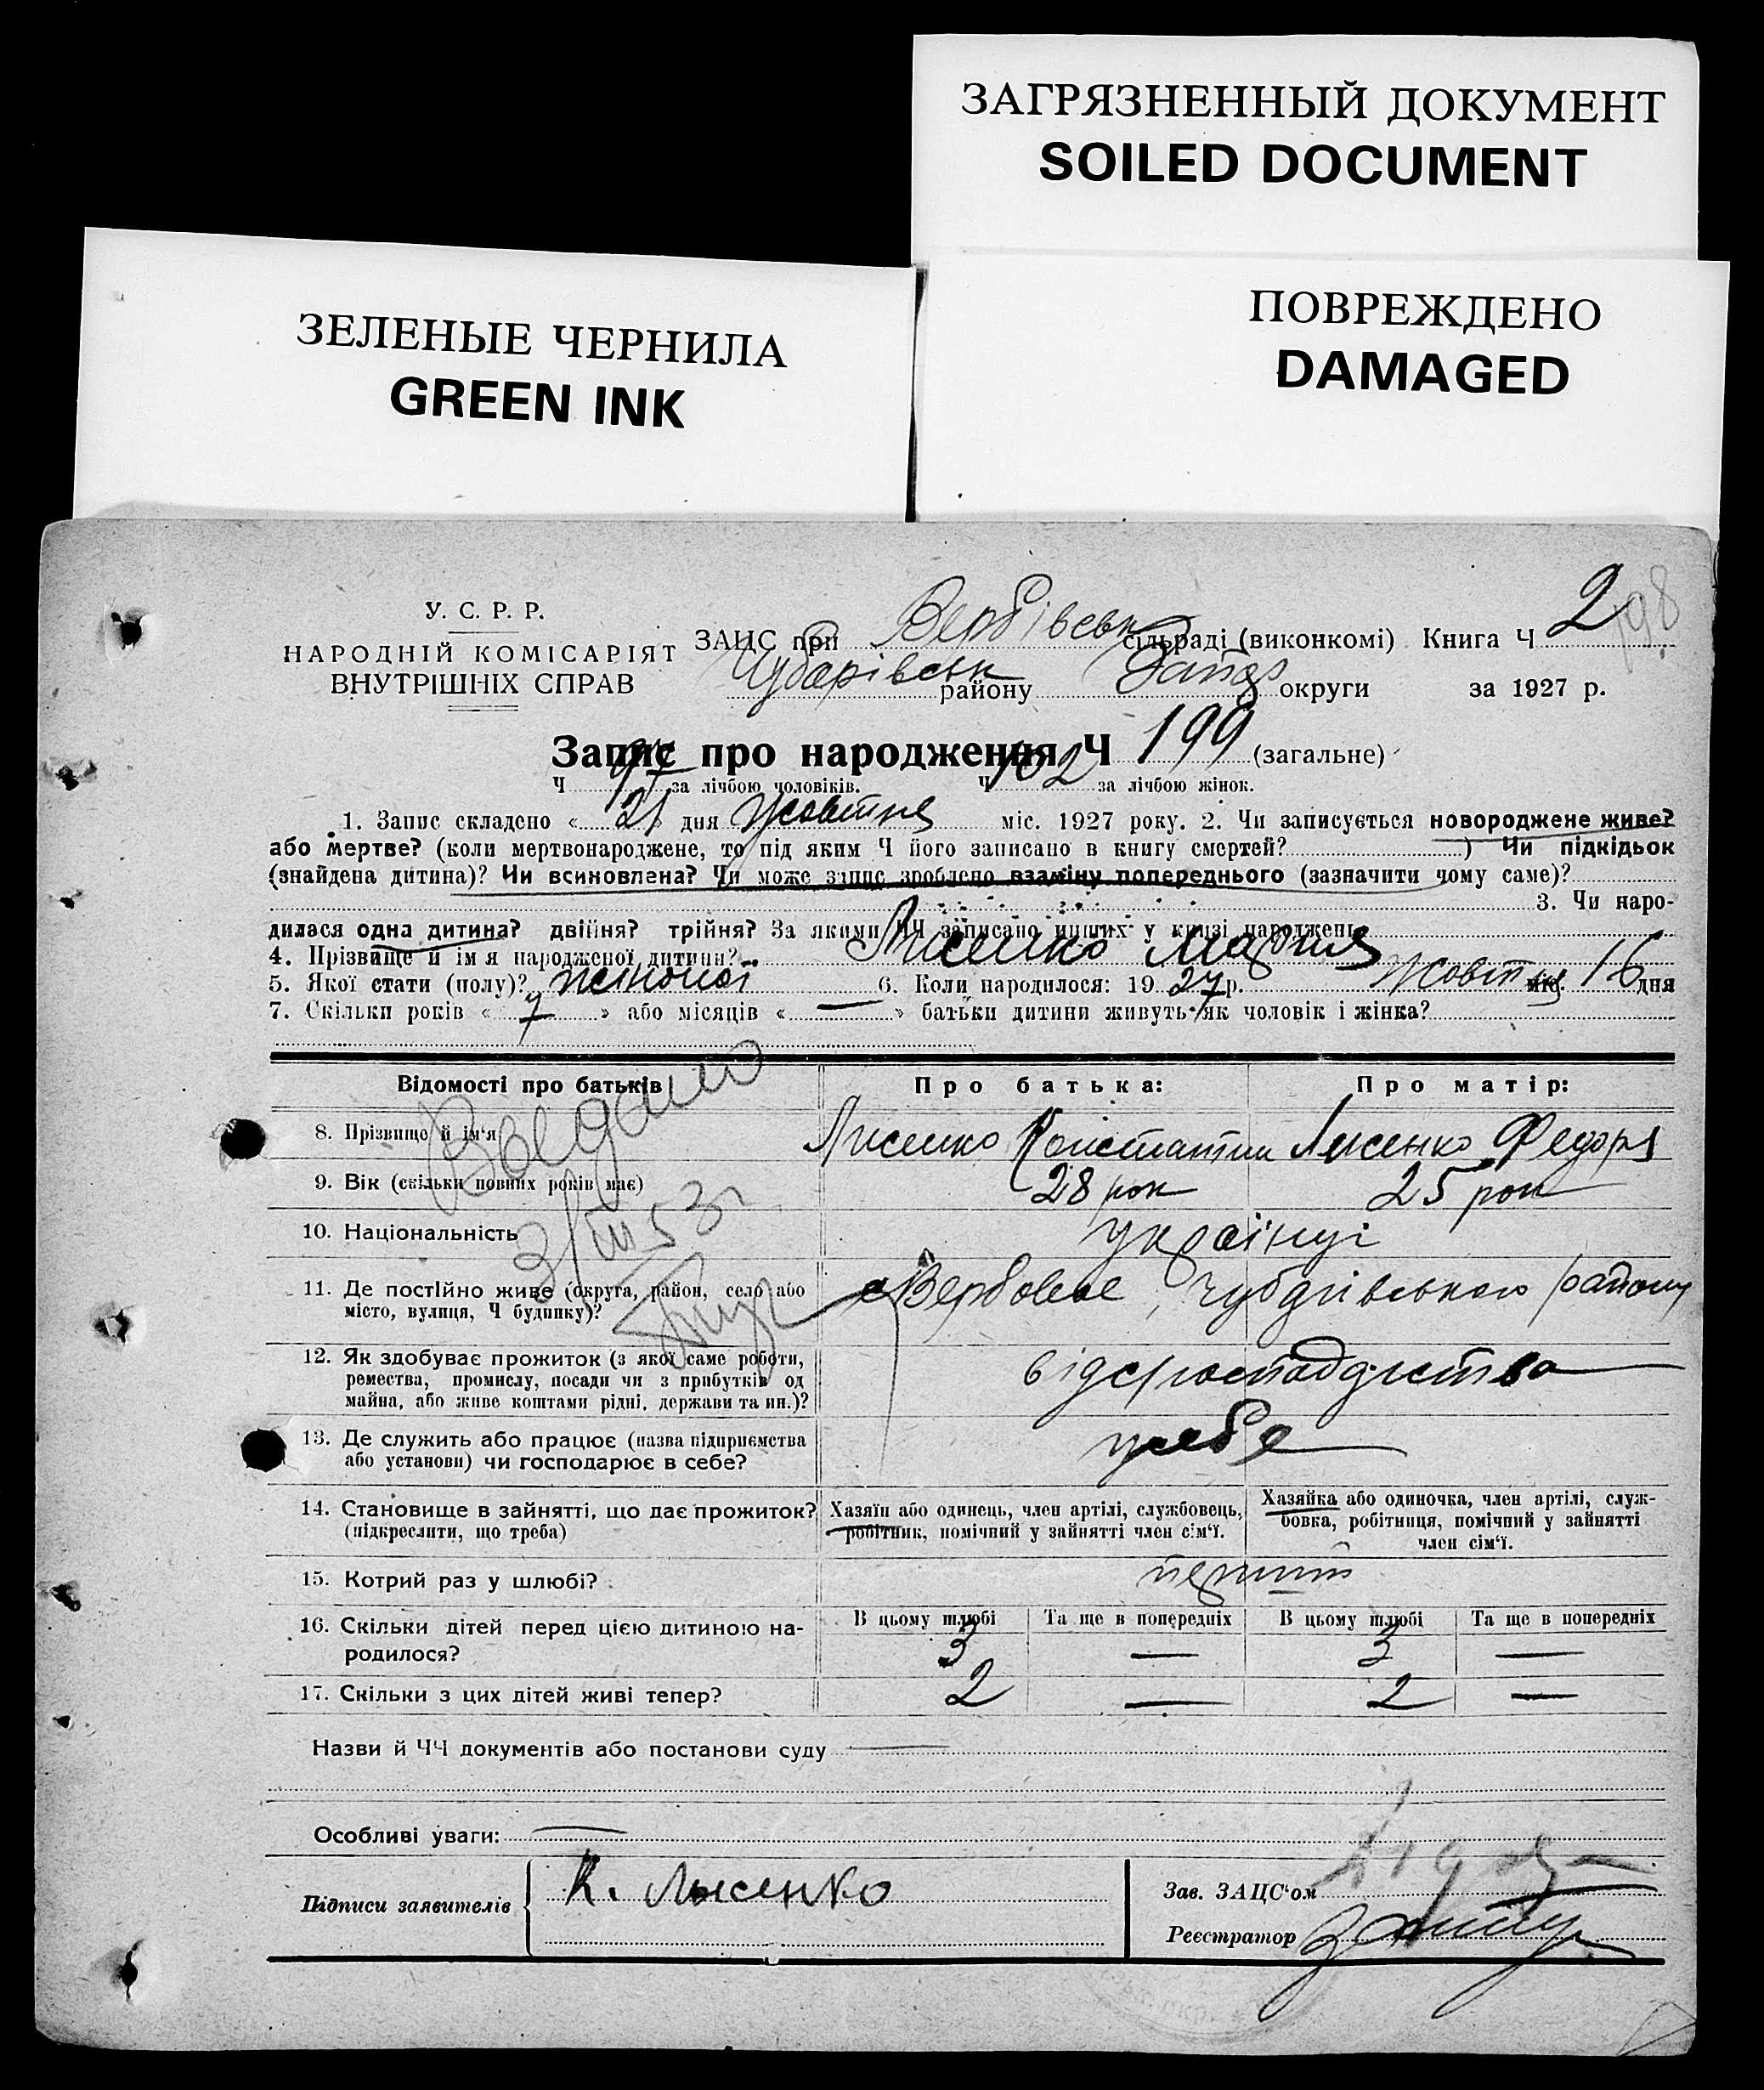 ЗАГРЯЗНЕННЫЙ ДОКУМЕНТ
SOILED DOCUMENT
ЗЕЛЕНЫЕ ЧЕРНИЛА
GREEN INK
ПОВРЕЖДЕНО
DAMAGED
У. С. Р. Р.
НАРОДНІЙ КОМІСАРІЯТ
ВНУТРІШНІХ СПРАВ
ЗАЦС при Вербівськ сільраді (виконкомі) Книга Ч 2
198
Чубарівськ району Запор округи за 1927 р.
Запис про народження Ч 199 (загальне)
Ч 97 за лічбою чоловіків. Ч 102 за лічбою жінок.
1. Запис складено « 21 » дня Жовтня міс. 1927 року. 2. Чи записується новороджене живе?
або мертве? (коли мертвонароджене, то під яким Ч його записано в книгу смертей? ) Чи підкідьок
(знайдена дитина)? Чи всиновлена? Чи може запис зроблено взаміну попереднього (зазначити чому саме)?
3. Чи наро-
дилася одна дитина? двійня? трійня? За якими ЧЧ записано инших у книзі народжень
4. Прізвище й ім'я народженої дитини? Лисенко Мария
5. Якої стати (полу)? жіночої 6. Коли народилося: 19 27 р. Жовтня міс. 16 дня
7. Скільки років « 7 » або місяців « — » батьки дитини живуть як чоловік і жінка?
Відомості про батьків Про батька: Про матір:
8. Прізвище й ім'я Лисенко Константин Лисенко Федора
9. Вік (скільки повних років має) 28 рок 25 рок
10. Національність українці
3/III 53 г
11. Де постійно живе (округа, район, село або
місто, вулиця, Ч будинку)?
с Вербовое, Чубарівського району
12. Як здобуває прожиток (з якої саме роботи,
ремества, промислу, посади чи з прибутків од
майна, або живе коштами рідні, держави та ин.)?
13. Де служить або працює (назва підприємства
або установи) чи господарює в себе?
у себе
14. Становище в зайнятті, що дає прожиток?
(підкреслити, що треба)
Хазяїн або одинець, член артілі, службовець,
робітник, помічний у зайнятті член сім'ї.
Хазяйка або одиночка, член артілі, служ-
бовка, робітниця, помічний у зайнятті
член сім'ї.
15. Котрий раз у шлюбі? перший
16. Скільки дітей перед цією дитиною на-
родилося?
В цьому шлюбі Та ще в попередніх В цьому шлюбі Та ще в попередніх
3 — 3 —
17. Скільки з цих дітей живі тепер? 2 — 2 —
Назви й ЧЧ документів або постанови суду —
Особливі уваги: —
Підписи заявителів К. Лысенко
Зав. ЗАЦС'ом
Реєстратор